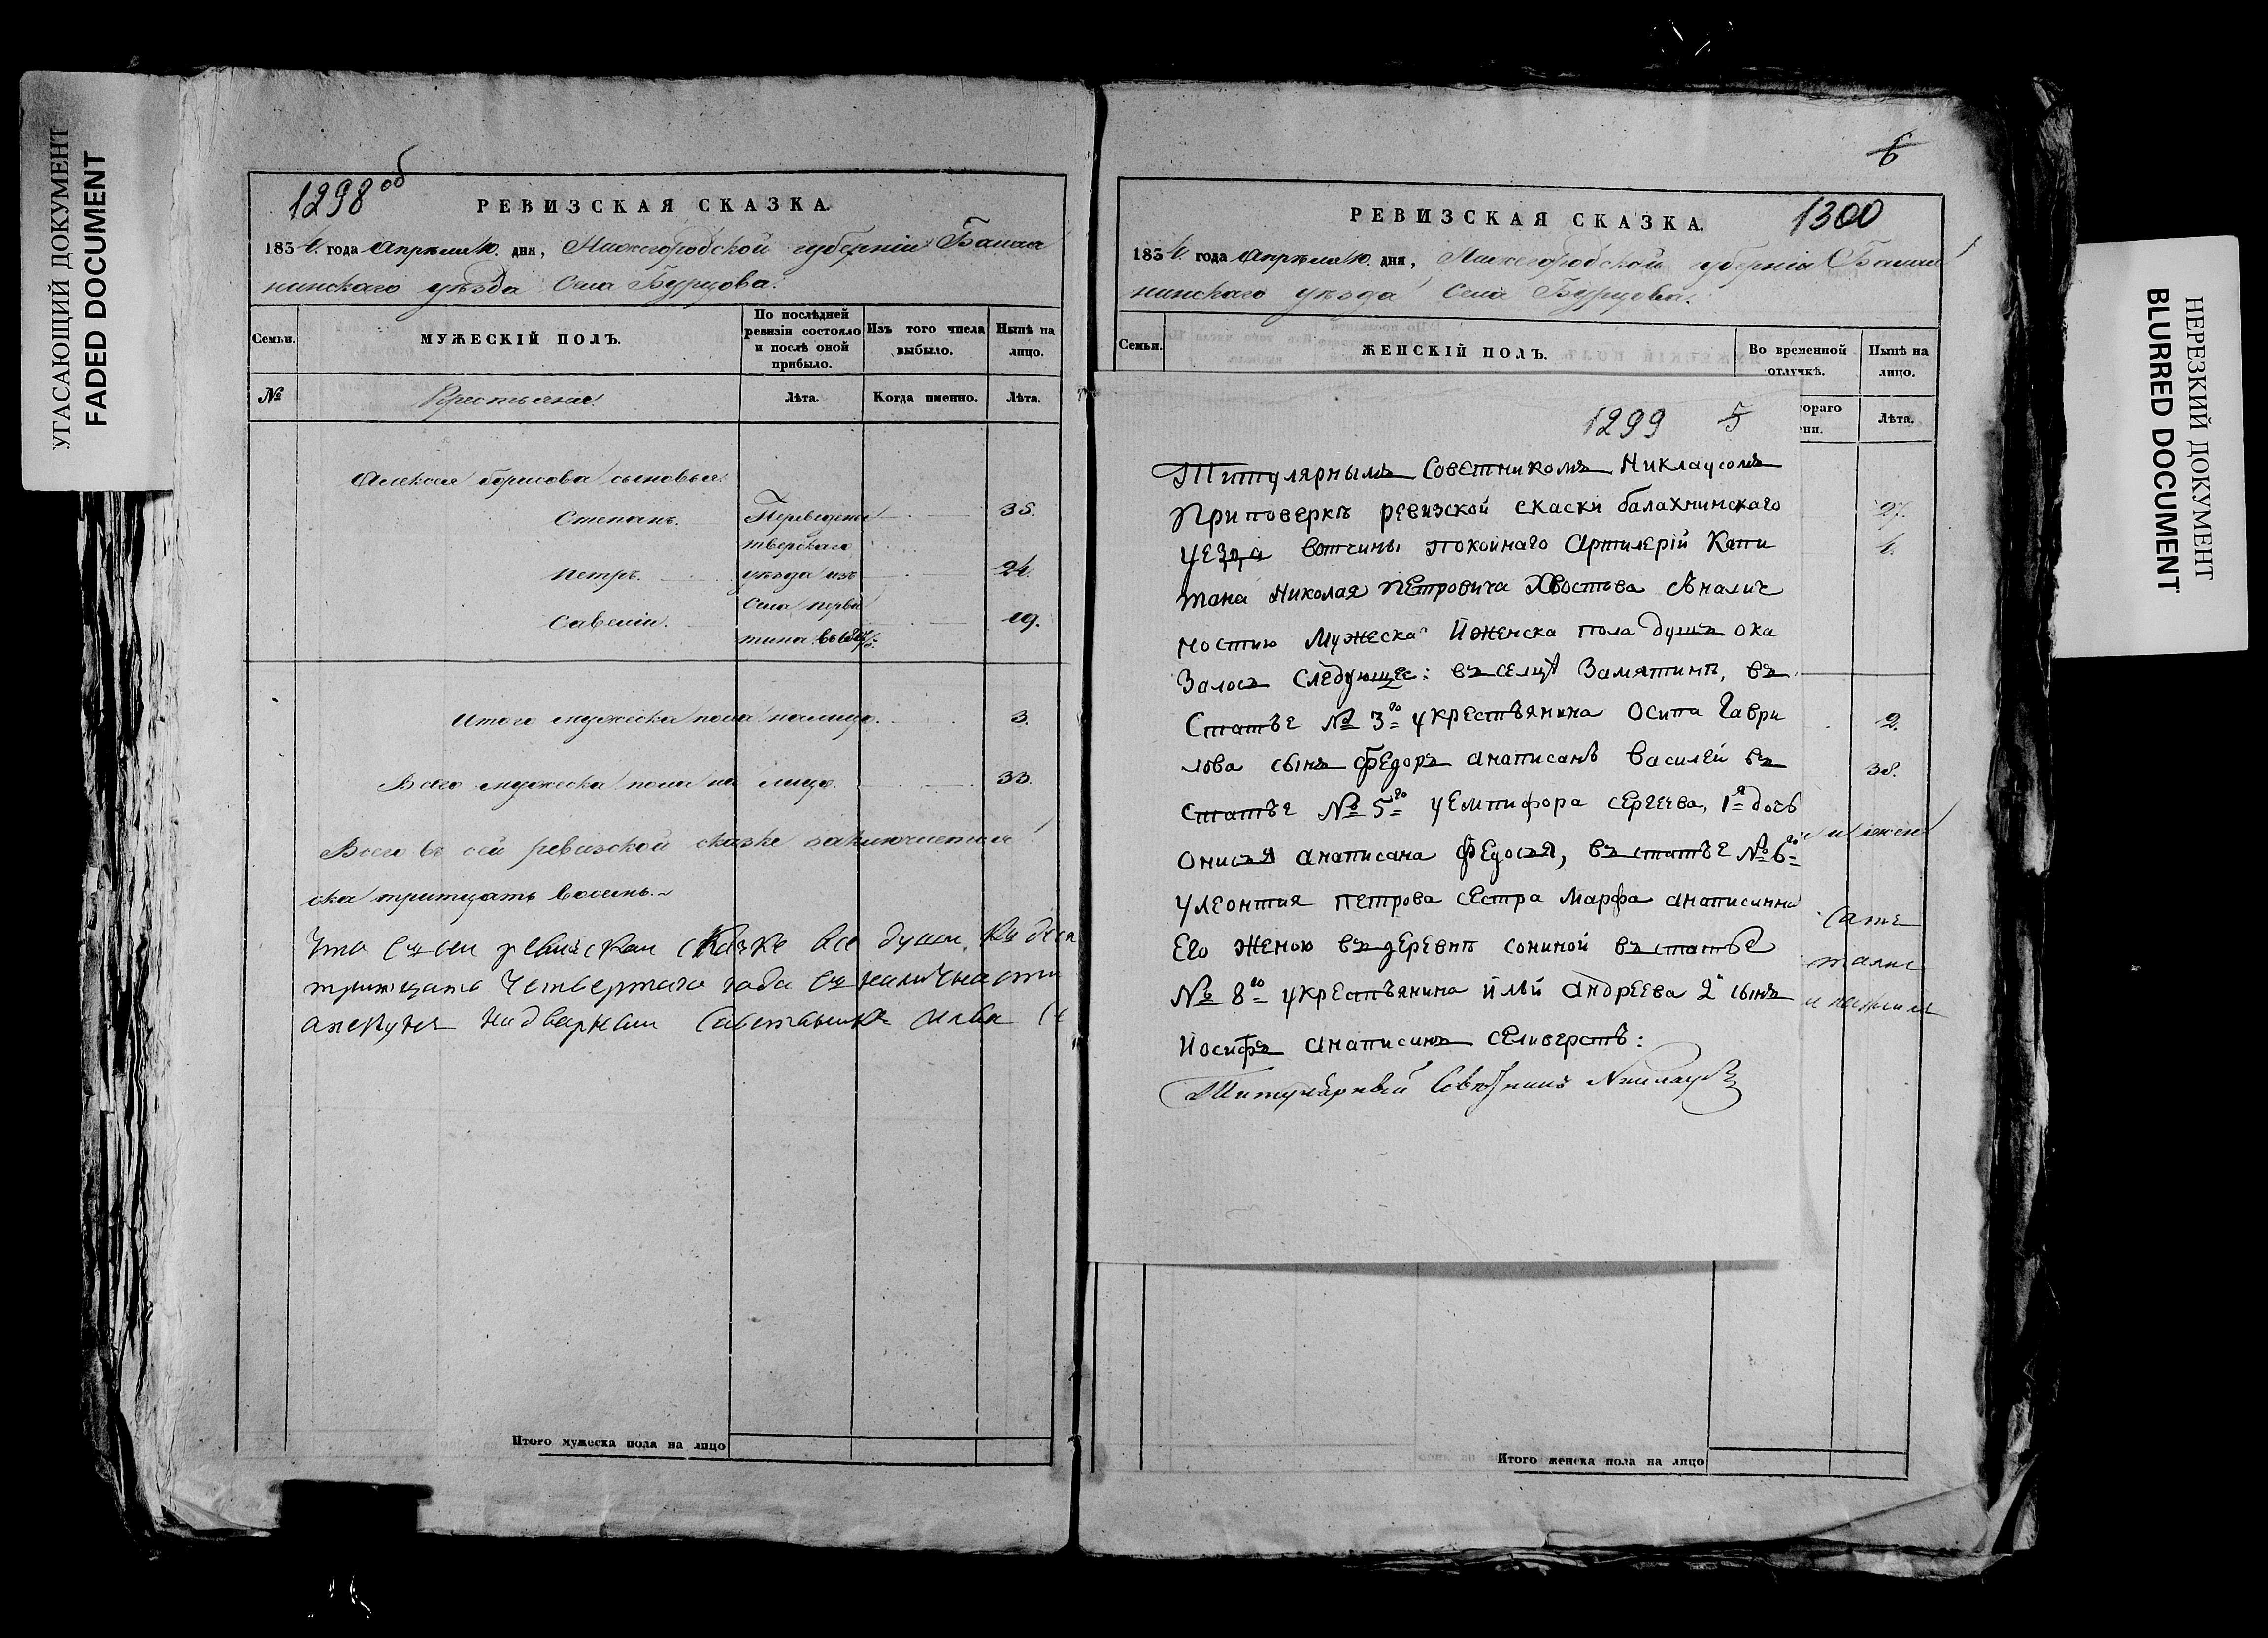 УГАСАЮЩИЙ ДОКУМЕНТ
FADED DOCUMENT
1298 об
РЕВИЗСКАЯ СКАЗКА.
1834. года Апреля 10. дня, Нижегородской губерніи Балах
нинскаго уезда Села Бурцова.
Семьи.
МУЖЕСКІЙ ПОЛЪ.
По послѣдней ревизіи состояло и послѣ оной прибыло.
Изъ того числа выбыло.
Нынѣ на лицо.
№
Крестьяне.
Лѣта.
Когда именно.
Лѣта.
Алексея борисова сыновья
Степанъ. Переведены 35.
тверскаго
Петръ. уѣзда изъ 24.
Села перви
Савелій. 19.
тина
Итого мужеска пола налицо. 3.
Всего мужеска пола на лицо. 33.
Всего в сей ревизской сказке заключается
ска тритцать восемь.
Что в сей ревизской сказке все души
тритцать четвертаго года
надворный советник
Итого мужеска пола на лицо
6
РЕВИЗСКАЯ СКАЗКА. 1300
1834. года Апреля 10. дня, Нижегородской губерніи Балах
нинскаго уезда Села Бурцова.
Семьи.
ЖЕНСКІЙ ПОЛЪ.
Во временной отлучкѣ.
Нынѣ на лицо.
Лѣта.
27.
2.
38.
1299 5
Титулярнымъ Советникомъ Никлаусомъ
При поверкѣ ревизской скаски балахнинскаго
уезда вотчины покойнаго Артилерій Капи
тана Николая Петровича Хвостова сналич
ностию Мужеска Йженска пола душъ ока
Залось Следующее: въ селцѣ Замятинѣ, въ
Статье № 3го укрестьянина Осипа Гаври
лова сынъ Федоръ анаписанъ Василей въ
статье № 5го уемпифора сергеева, 1я дочь
Онисья анаписана Федосья, въ статье № 6го
улеонтия петрова сестра Марфа анаписанна
Его женою въ деревнѣ сониной въ статье
№ 8го укрестьянина йльй андреева 2й сынъ
Йосифъ анаписанъ селиверстъ:
Титулярный Советникъ Никлаусъ
Итого женска пола на лицо
НЕРЕЗКИЙ ДОКУМЕНТ
BLURRED DOCUMENT